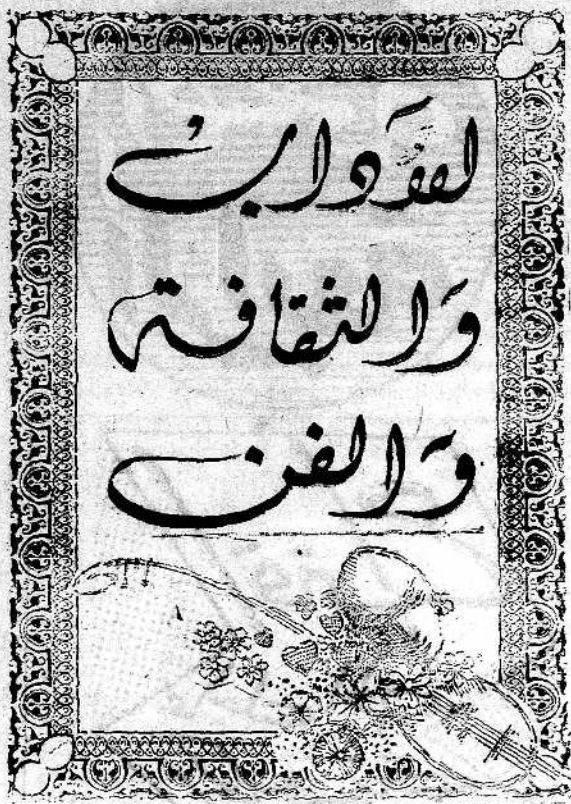 الآداب
والثقافة
والفن